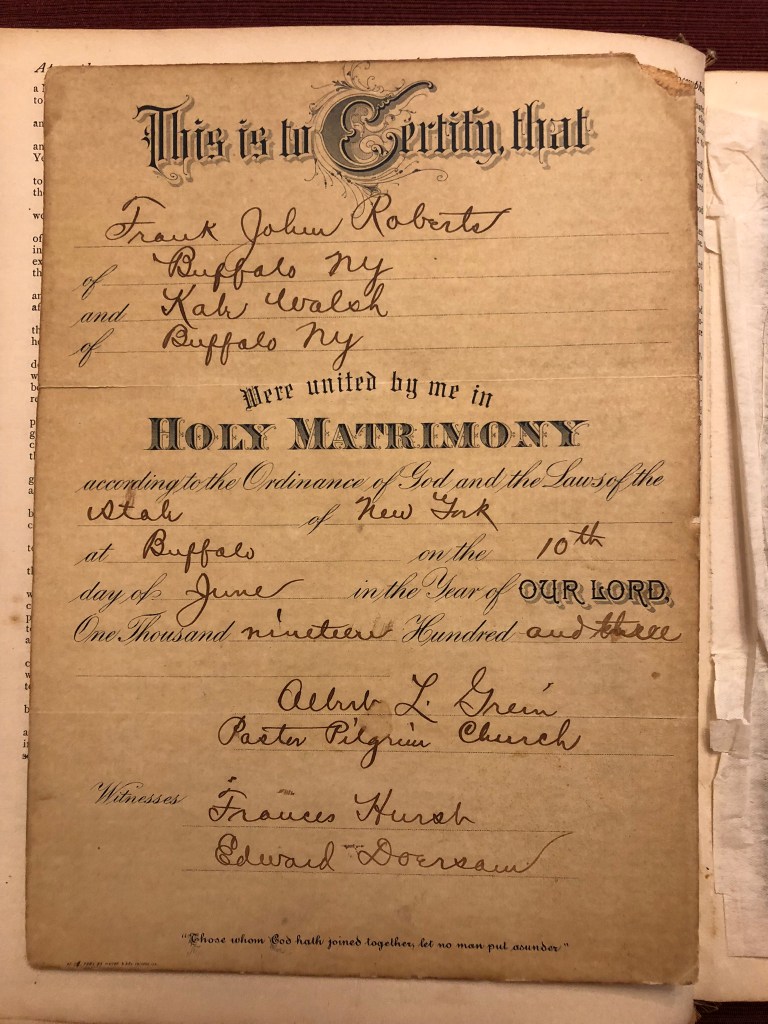 This is to Certify, that
Frank John Roberts
of Buffalo NY
and Kate Walsh
of Buffalo NY
Were united by me in
HOLY MATRIMONY
according to the Ordinance of God and the Laws of the
State of New York
at Buffalo on the 10th
day of June in the Year of OUR LORD,
One Thousand nineteen Hundred and three
Albert L. Grein
Pastor Pilgrim Church
Witnesses Frances Hurst
Edward Doersam
"Those whom God hath joined together, let no man put asunder"